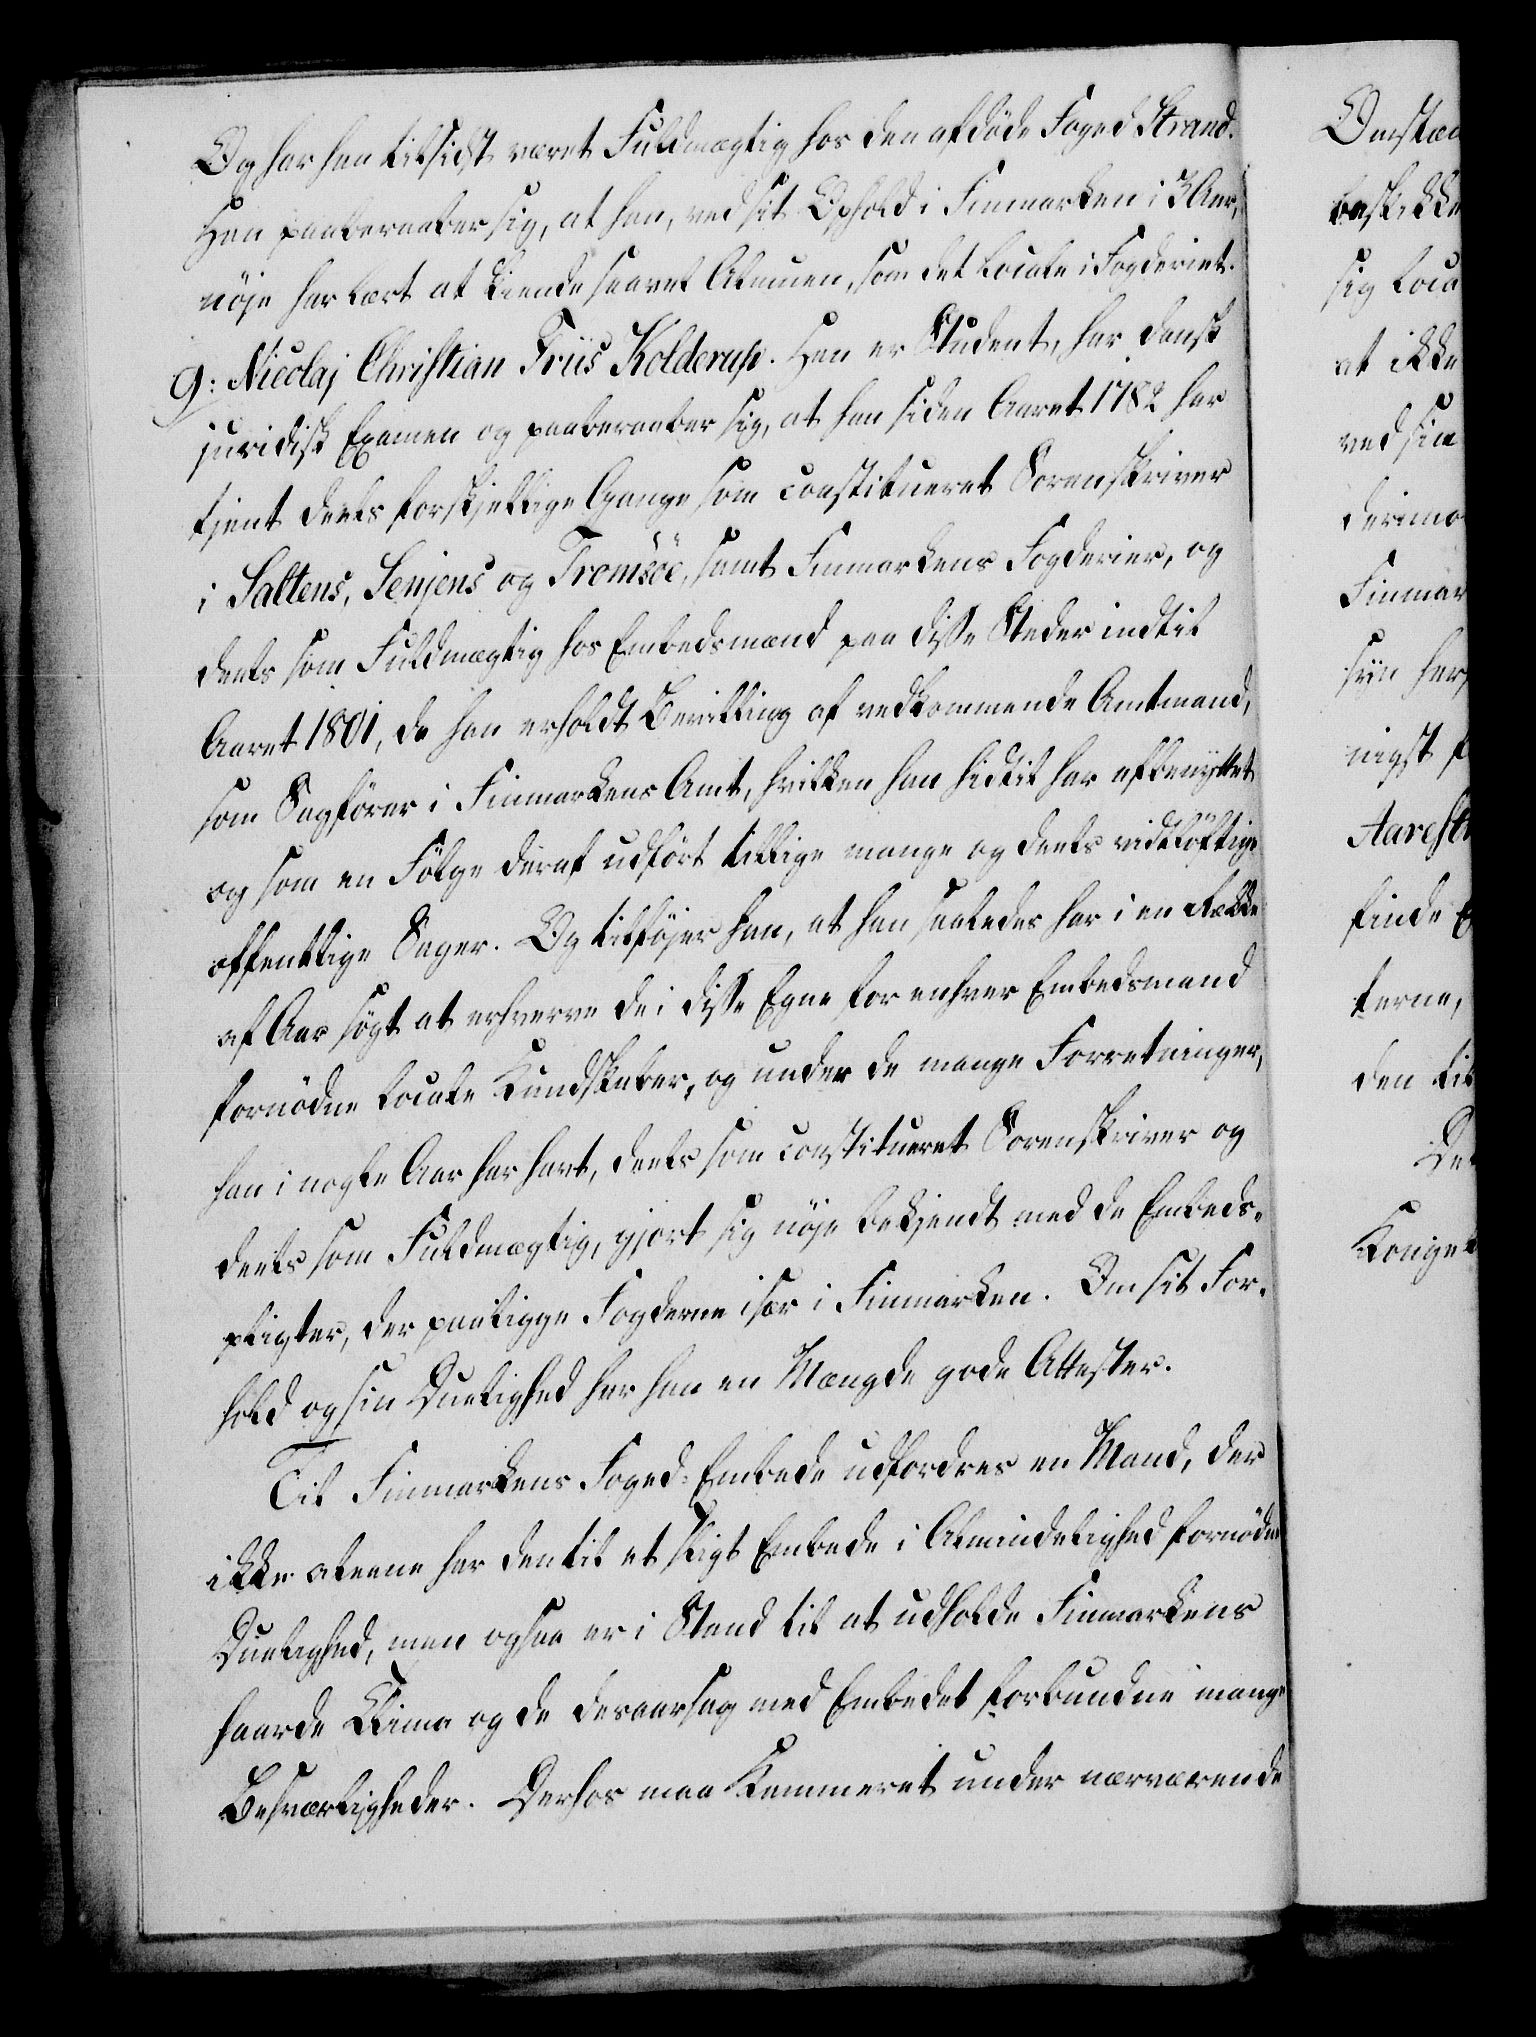 Og har han tilsidst været Fuldmægtig hos den afdöde Foged Strand.
Han paaberaaber sig, at han, ved sit Ophold i Finmarken i 3 Aar,
nöje har lært at kiende saavel Almuen, som det locale i Fogderiet.
9: Nicolaj Christian Friis Kolderup. Han er Student, har dansk
juridisk Examen og paaberaaber sig, at han siden Aaret 1782 har
tjent deels forskjellige Gange som constitueret Sorenskriver
i Saltens, Senjens og Tromsöe, samt Finmarkens Fogderier, og
deels som Fuldmægtig hos Embedsmænd paa disse Steder indtil
Aaret 1801, da han erholdt Bevilling af vedkommende Amtmand,
som Sagförer i Finmarkens Amt, hvilken han hidtil har afbenyttet
og som en Fölge deraf udfört tillige mange og deels vidtlöftige
offentlige Sager. Og tilföjer han, at han saaledes har i en Række
af Aar sögt at erhverve de i disse Egne for enhver Embedsmand
fornödne locale Kundskaber, og under de mange Forretninger,
han i nogle Aar har havt, deels som constitueret Sorenskriver og
deels som Fuldmægtig, gjort sig nöje bekjendt med de Embeds-
pligter, der paaligge Fogderne især i Finmarken. Om sit For-
hold og sin Duelighed har han en Mængde gode Attester.
Til Finmarkens Foged-Embede udfordres en Mand, der
ikke alene har den til et sligt Embede i Almindelighed fornödne
Duelighed, men ogsaa er i Stand til at udholde Finmarkens
haarde Klima og de desaarsag med Embedet forbundne mange
Besværligheder. Derhos maa Kammeret under nærværende
Omstæn
beskikke
sig loca
at ikke
ved sin
derimo
Finmar
syn her
nigst f
Aarest
finde E
terne,
den til
De
Konge